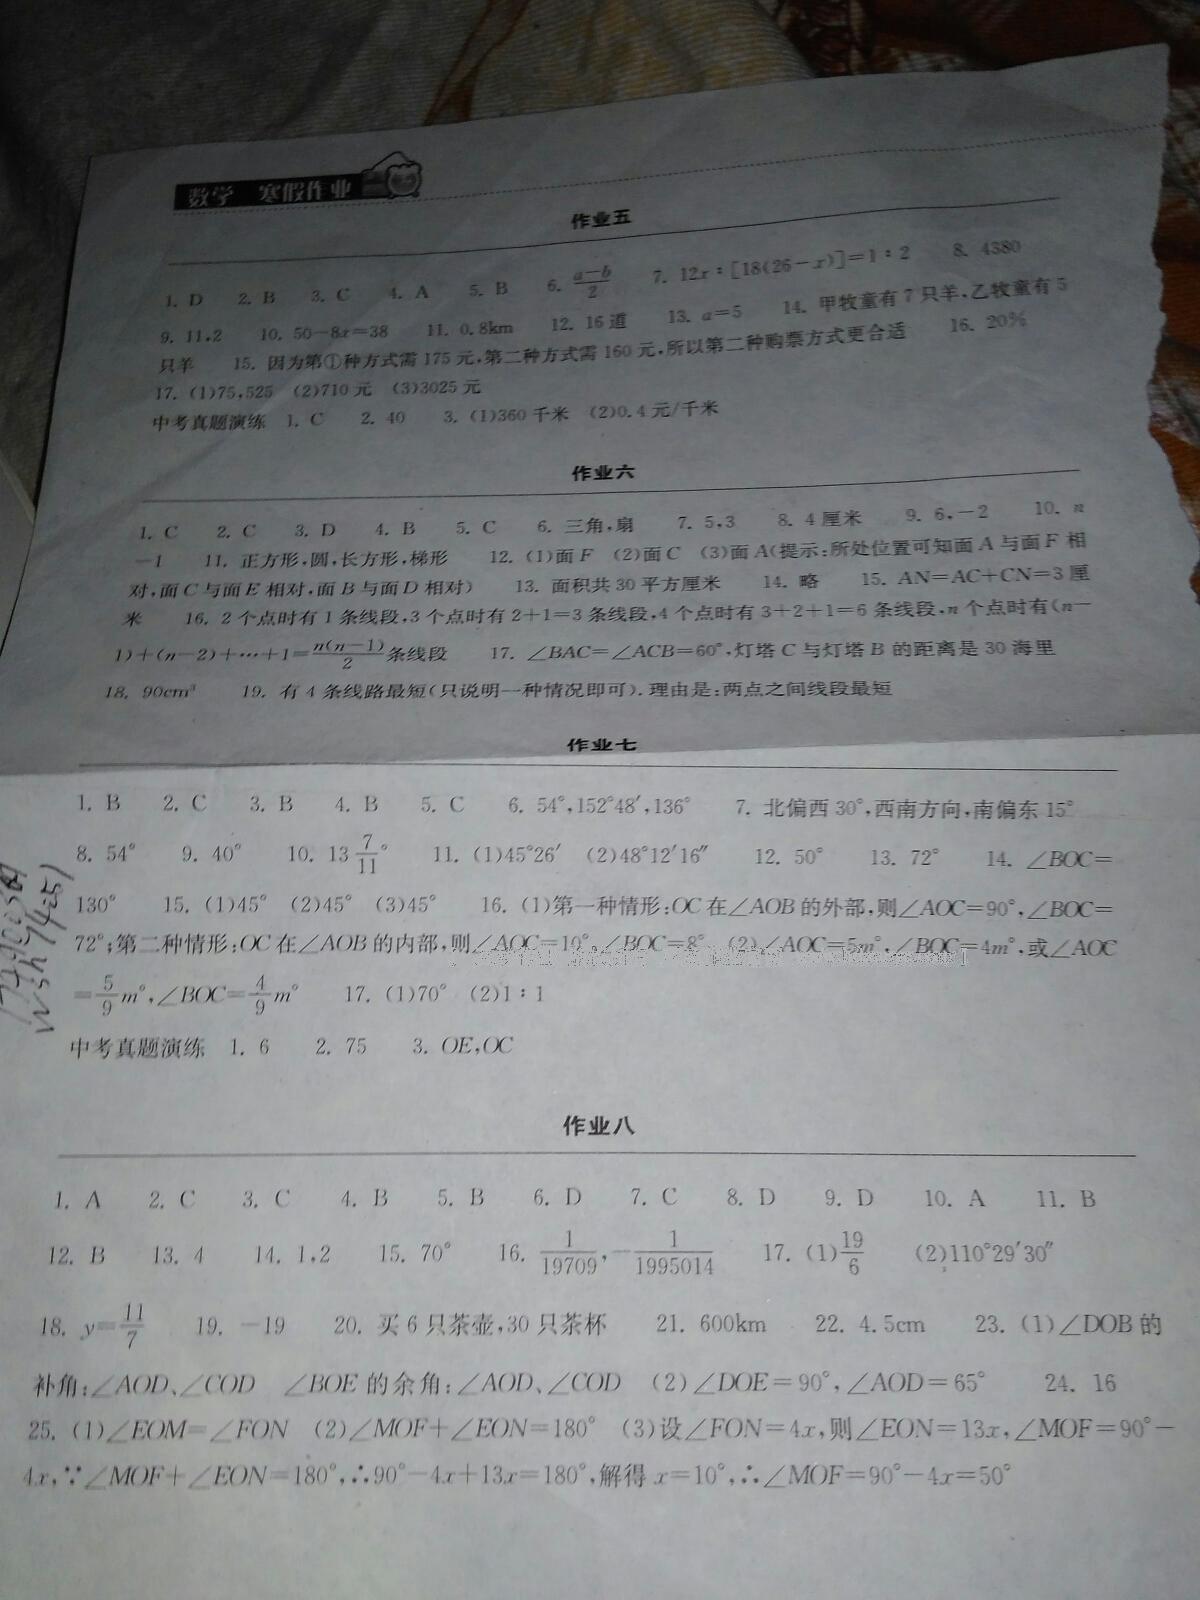 数学 寒假作业
作业五
1. D 2. B 3. C 4. A 5. B 6. a−b/2 7. 12x∶[18(26−x)]=1∶2 8. 4380
9. 11,2 10. 50−8x=38 11. 0.8km 12. 16道 13. a=5 14. 甲牧童有7只羊,乙牧童有5
只羊 15. 因为第①种方式需175元,第二种方式需160元,所以第二种购票方式更合适 16. 20%
17. (1)75,525 (2)710元 (3)3025元
中考真题演练 1. C 2. 40 3. (1)360千米 (2)0.4元/千米
作业六
1. C 2. C 3. D 4. B 5. C 6. 三角,扇 7. 5,3 8. 4厘米 9. 6,−2 10. n
−1 11. 正方形,圆,长方形,梯形 12. (1)面F (2)面C (3)面A(提示:所处位置可知面A与面F相
对,面C与面E相对,面B与面D相对) 13. 面积共30平方厘米 14. 略 15. AN=AC+CN=3厘
米 16. 2个点时有1条线段,3个点时有2+1=3条线段,4个点时有3+2+1=6条线段,n个点时有(n−
1)+(n−2)+…+1=n(n−1)/2条线段 17. ∠BAC=∠ACB=60°,灯塔C与灯塔B的距离是30海里
18. 90cm³ 19. 有4条线路最短(只说明一种情况即可).理由是:两点之间线段最短
作业七
1. B 2. C 3. B 4. B 5. C 6. 54°,152°48′,136° 7. 北偏西30°,西南方向,南偏东15°
8. 54° 9. 40° 10. 13 7/11° 11. (1)45°26′ (2)48°12′16″ 12. 50° 13. 72° 14. ∠BOC=
130° 15. (1)45° (2)45° (3)45° 16. (1)第一种情形:OC在∠AOB的外部,则∠AOC=90°,∠BOC=
72°;第二种情形:OC在∠AOB的内部,则∠AOC=10°,∠BOC=8° (2)∠AOC=5m°,∠BOC=4m°,或∠AOC
=5/9m°,∠BOC=4/9m° 17. (1)70° (2)1∶1
中考真题演练 1. 6 2. 75 3. OE,OC
作业八
1. A 2. C 3. C 4. B 5. B 6. D 7. C 8. D 9. D 10. A 11. B
12. B 13. 4 14. 1,2 15. 70° 16. 1/19709,−1/1995014 17. (1)19/6 (2)110°29′30″
18. y=11/7 19. −19 20. 买6只茶壶,30只茶杯 21. 600km 22. 4.5cm 23. (1)∠DOB的
补角:∠AOD、∠COD ∠BOE的余角:∠AOD、∠COD (2)∠DOE=90°,∠AOD=65° 24. 16
25. (1)∠EOM=∠FON (2)∠MOF+∠EON=180° (3)设∠FON=4x,则∠EON=13x,∠MOF=90°−
4x,∵∠MOF+∠EON=180°,∴90°−4x+13x=180°,解得x=10°,∴∠MOF=90°−4x=50°